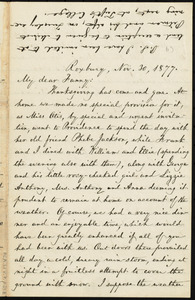 P.S. I have been invited to
Roxbury, Nov. 30, 1877.
My dear Fanny:
Thanksgiving has come and gone. At
home we made no special provision for it,
as Miss Otis, by special and urgent invita-
tion, went to Providence to spend the day with
her old friend Phebe Jackson, while Frank
and I dined with William and Ellie (spending
the evening also with them), along with George
and his little rosy-cheeked girl and Lizzie
Anthony, Mrs. Anthony and Anna deeming it
prudent to remain at home on account of the
weather. Of course, we had a very nice din-
ner and an enjoyable time, which would
have been greatly enhanced if all of you
had been with us. Out doors there prevailed
all day a cold, driving rain-storm, ending at
night in a fruitless attempt to cover the
ground with snow. I suppose the weather